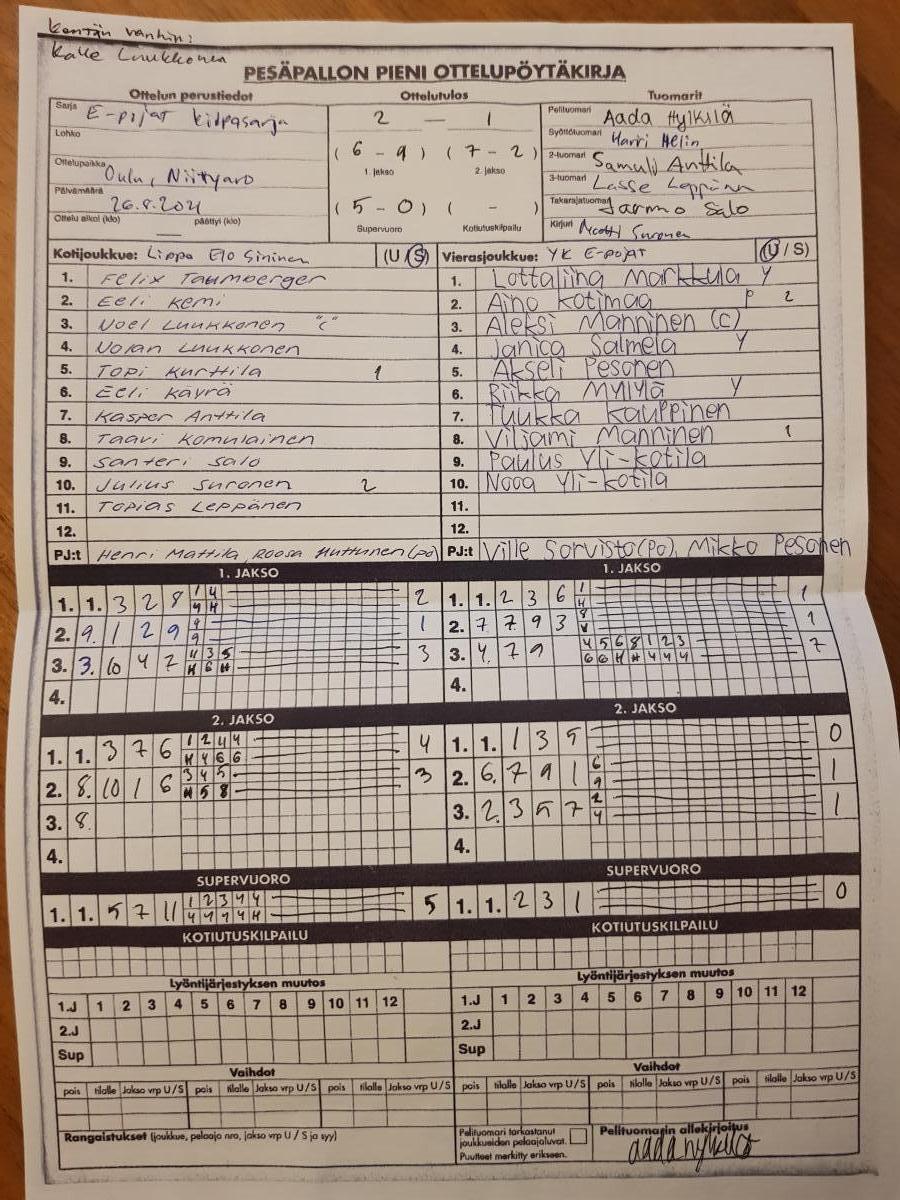 Kentän vanhin:
Kalle Luukkonen
PESÄPALLON PIENI OTTELUPÖYTÄKIRJA
Ottelun perustiedot Ottelutulos Tuomarit
Sarja E-pojat kilpasarja
Lohko
Ottelupaikka Oulu, Niittyaro
Päivämäärä
Ottelu alkoi (klo) päättyi (klo)
2 — 1
(6 - 9) (7 - 2)
1. jakso 2. jakso
(5 - 0) ( - )
Supervuoro Kotiutuskilpailu
Pelituomari Aada Hylkilä
Syöttötuomari Harri Helin
2-tuomari Samuli Anttila
3-tuomari Lasse Leppänen
Takarajatuomari Jarmo Salo
Kirjuri Suronen
Kotijoukkue: Lippo Elo Sininen (U/S)
1. Felix Taumberger
2. Eeli Kemi
3. Noel Luukkonen "C"
4. Nolan Luukkonen
5. Topi Kurttila 1
6. Eeli Käyrä
7. Kasper Anttila
8. Taavi Komulainen
9. Santeri Salo
10. Julius Suronen 2
11. Topias Leppänen
12.
PJ:t Henri Mattila, Roosa Huttunen (po)
Vierasjoukkue: YK E-pojat (U/S)
1. Lottaliina Markkula Y
2. Aino Kotimaa P 2
3. Aleksi Manninen (C)
4. Janica Salmela Y
5. Akseli Pesonen
6. Riikka Myllylä Y
7. Tuukka Kauppinen
8. Viljami Manninen 1
9. Paulus Yli-Kotila
10. Nooa Yli-Kotila
11.
12.
PJ:t Ville Sorvisto (Po), Mikko Pesonen
1. JAKSO
1. 1. 3 2 8 2
2. 9. 1 2 9 1
3. 3. 10 4 7 3
4.
1. JAKSO
1. 1. 2 3 6 1
2. 7. 7 9 3 1
3. 4. 7 9 4 5 6 8 1 2 3 7
4.
2. JAKSO
1. 1. 3 7 6 1 2 4 4 4
2. 8. 10 1 6 3 4 5 3
3. 8.
4.
2. JAKSO
1. 1. 1 3 5 0
2. 6. 7 9 1 6 9 1
3. 2. 3 5 7 2 4 1
4.
SUPERVUORO
1. 1. 5 7 11 1 2 3 4 4 5
SUPERVUORO
1. 1. 2 3 1 0
KOTIUTUSKILPAILU
KOTIUTUSKILPAILU
Lyöntijärjestyksen muutos
1.J 1 2 3 4 5 6 7 8 9 10 11 12
2.J
Sup
Lyöntijärjestyksen muutos
1.J 1 2 3 4 5 6 7 8 9 10 11 12
2.J
Sup
Vaihdot
pois tilalle Jakso vrp U/S pois tilalle Jakso vrp U/S pois tilalle Jakso vrp U/S
Vaihdot
pois tilalle Jakso vrp U/S pois tilalle Jakso vrp U/S pois tilalle Jakso vrp U/S
Rangaistukset (joukkue, pelaaja nro, jakso vrp U / S ja syy)
Pelituomari tarkastanut
joukkueiden pelaajaluvat.
Puutteet merkitty erikseen.
Pelituomarin allekirjoitus